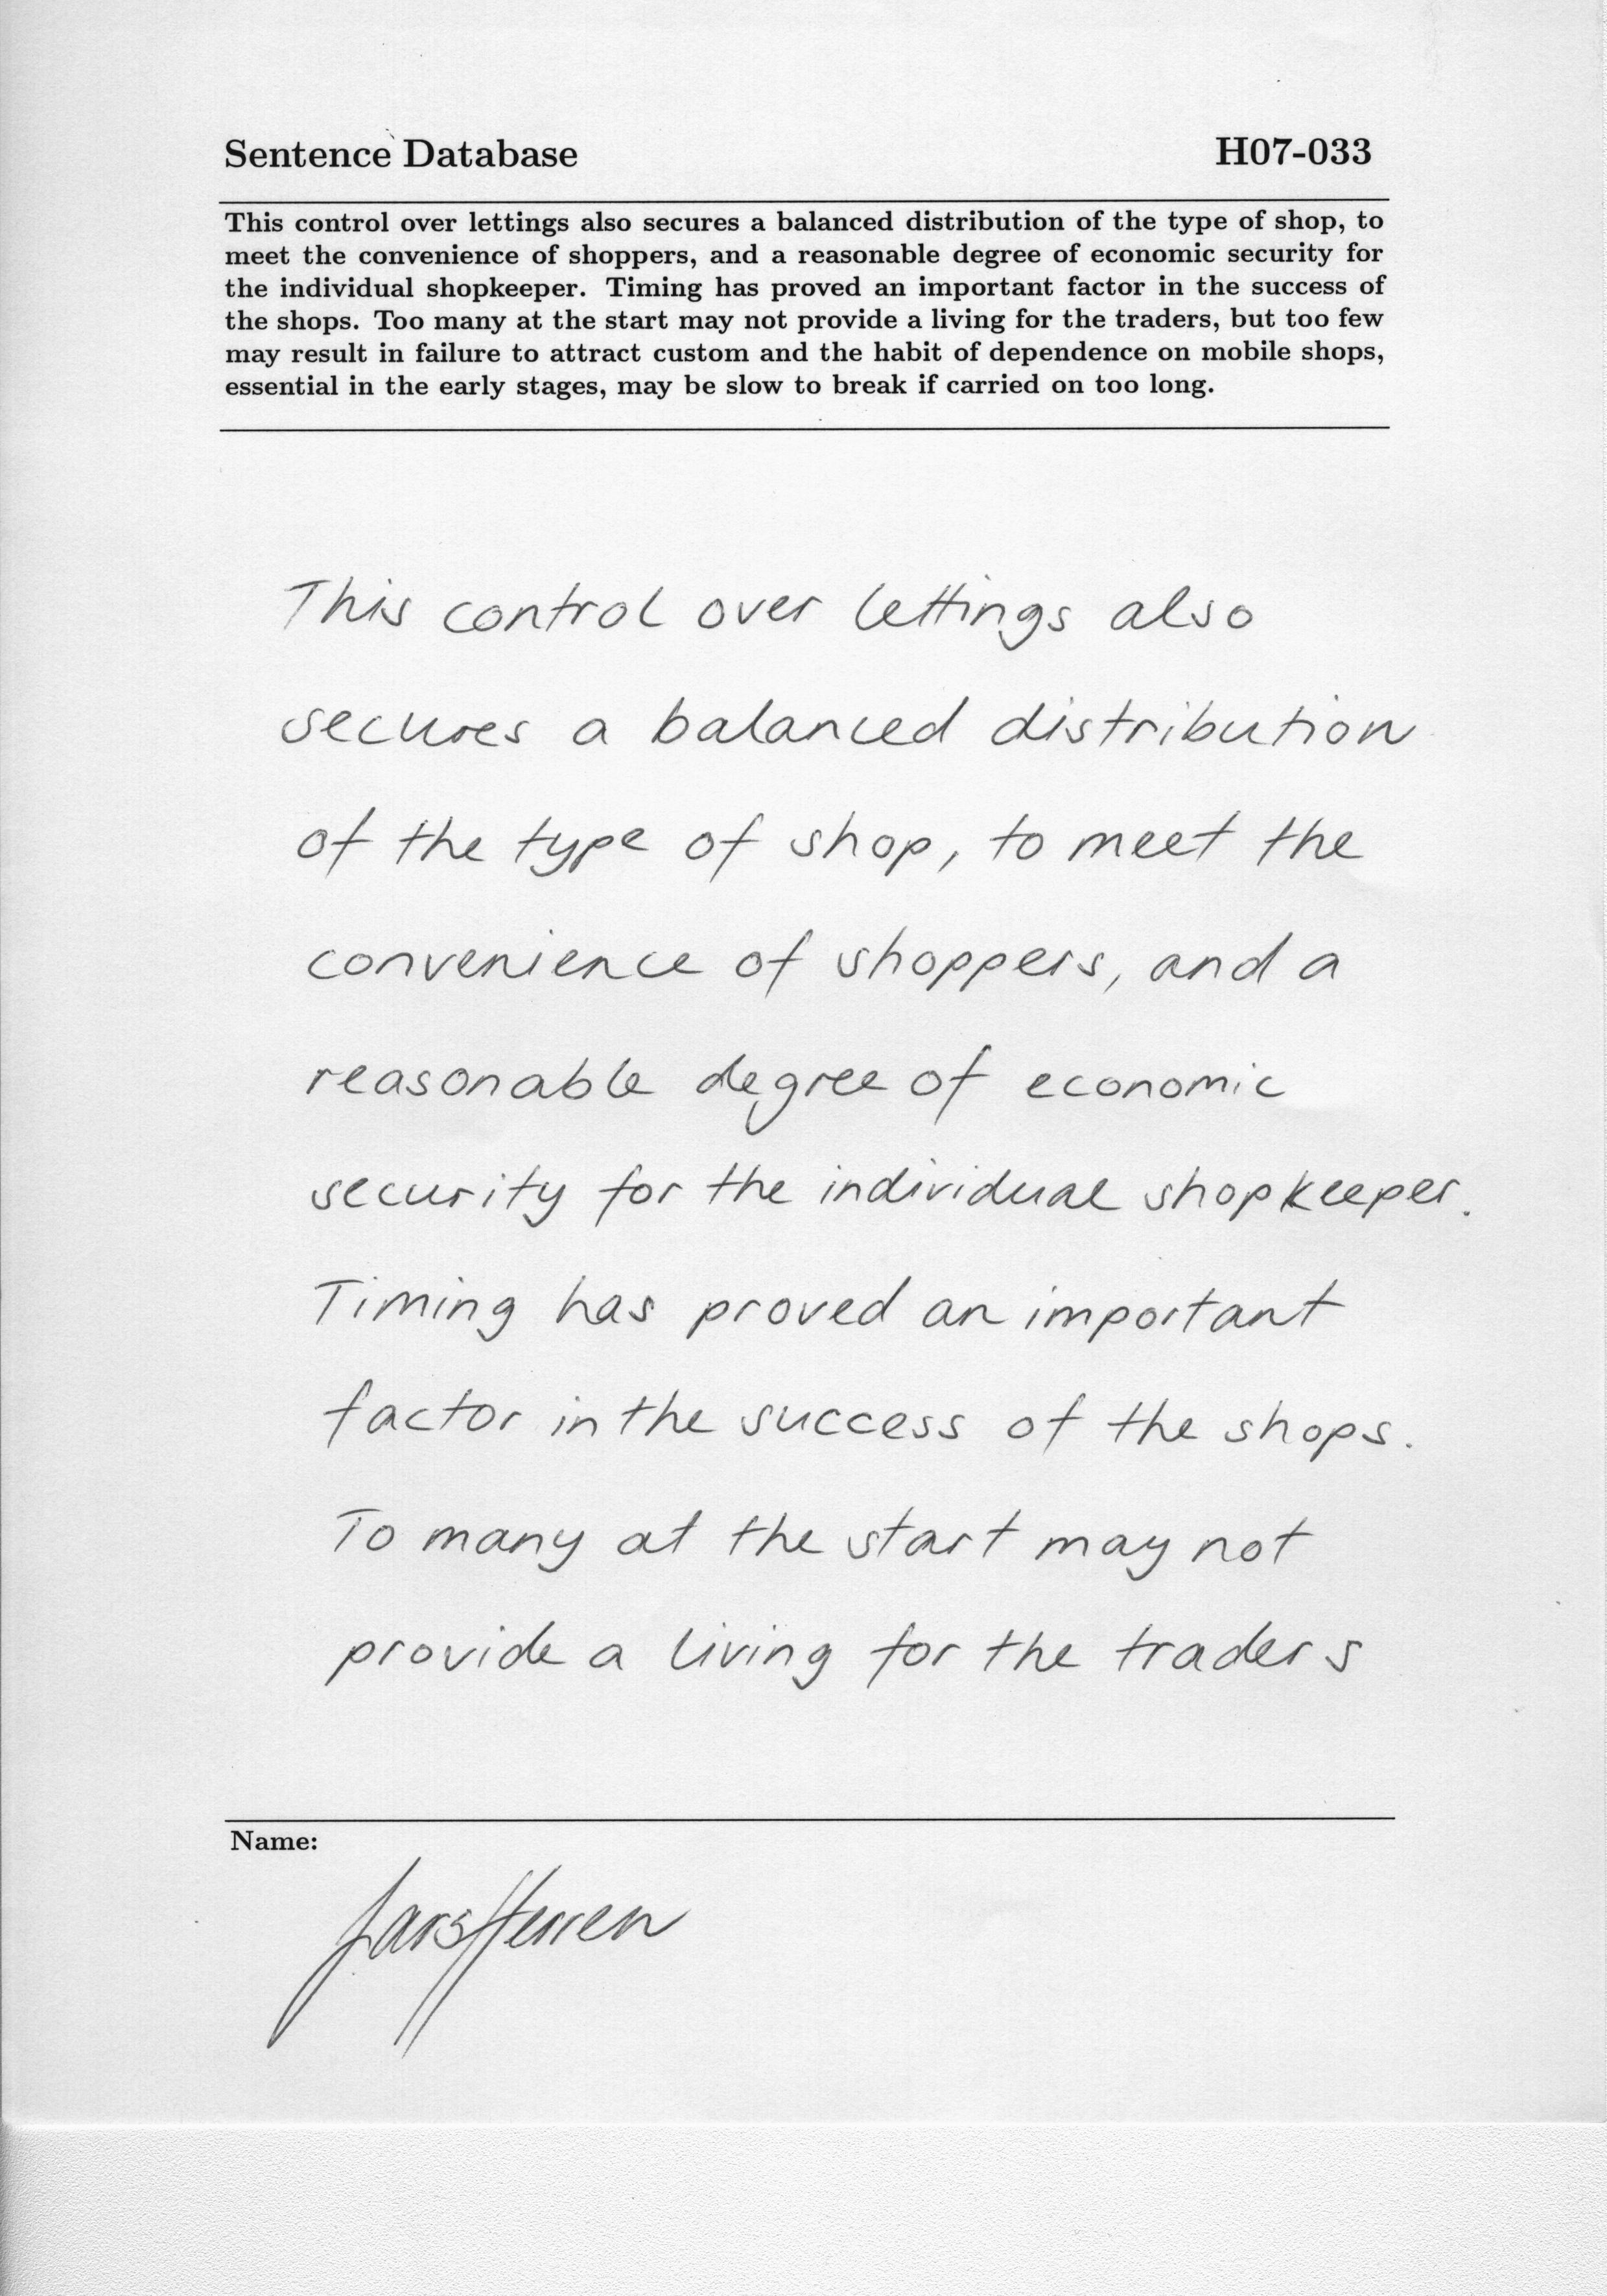 Sentence Database H07-033
This control over lettings also secures a balanced distribution of the type of shop, to
meet the convenience of shoppers, and a reasonable degree of economic security for
the individual shopkeeper. Timing has proved an important factor in the success of
the shops. Too many at the start may not provide a living for the traders, but too few
may result in failure to attract custom and the habit of dependence on mobile shops,
essential in the early stages, may be slow to break if carried on too long.
This control over lettings also
secures a balanced distribution
of the type of shop, to meet the
convenience of shoppers, and a
reasonable degree of economic
security for the individual shopkeeper.
Timing has proved an important
factor in the success of the shops.
To many at the start may not
provide a living for the traders
Name:
Lars Herren